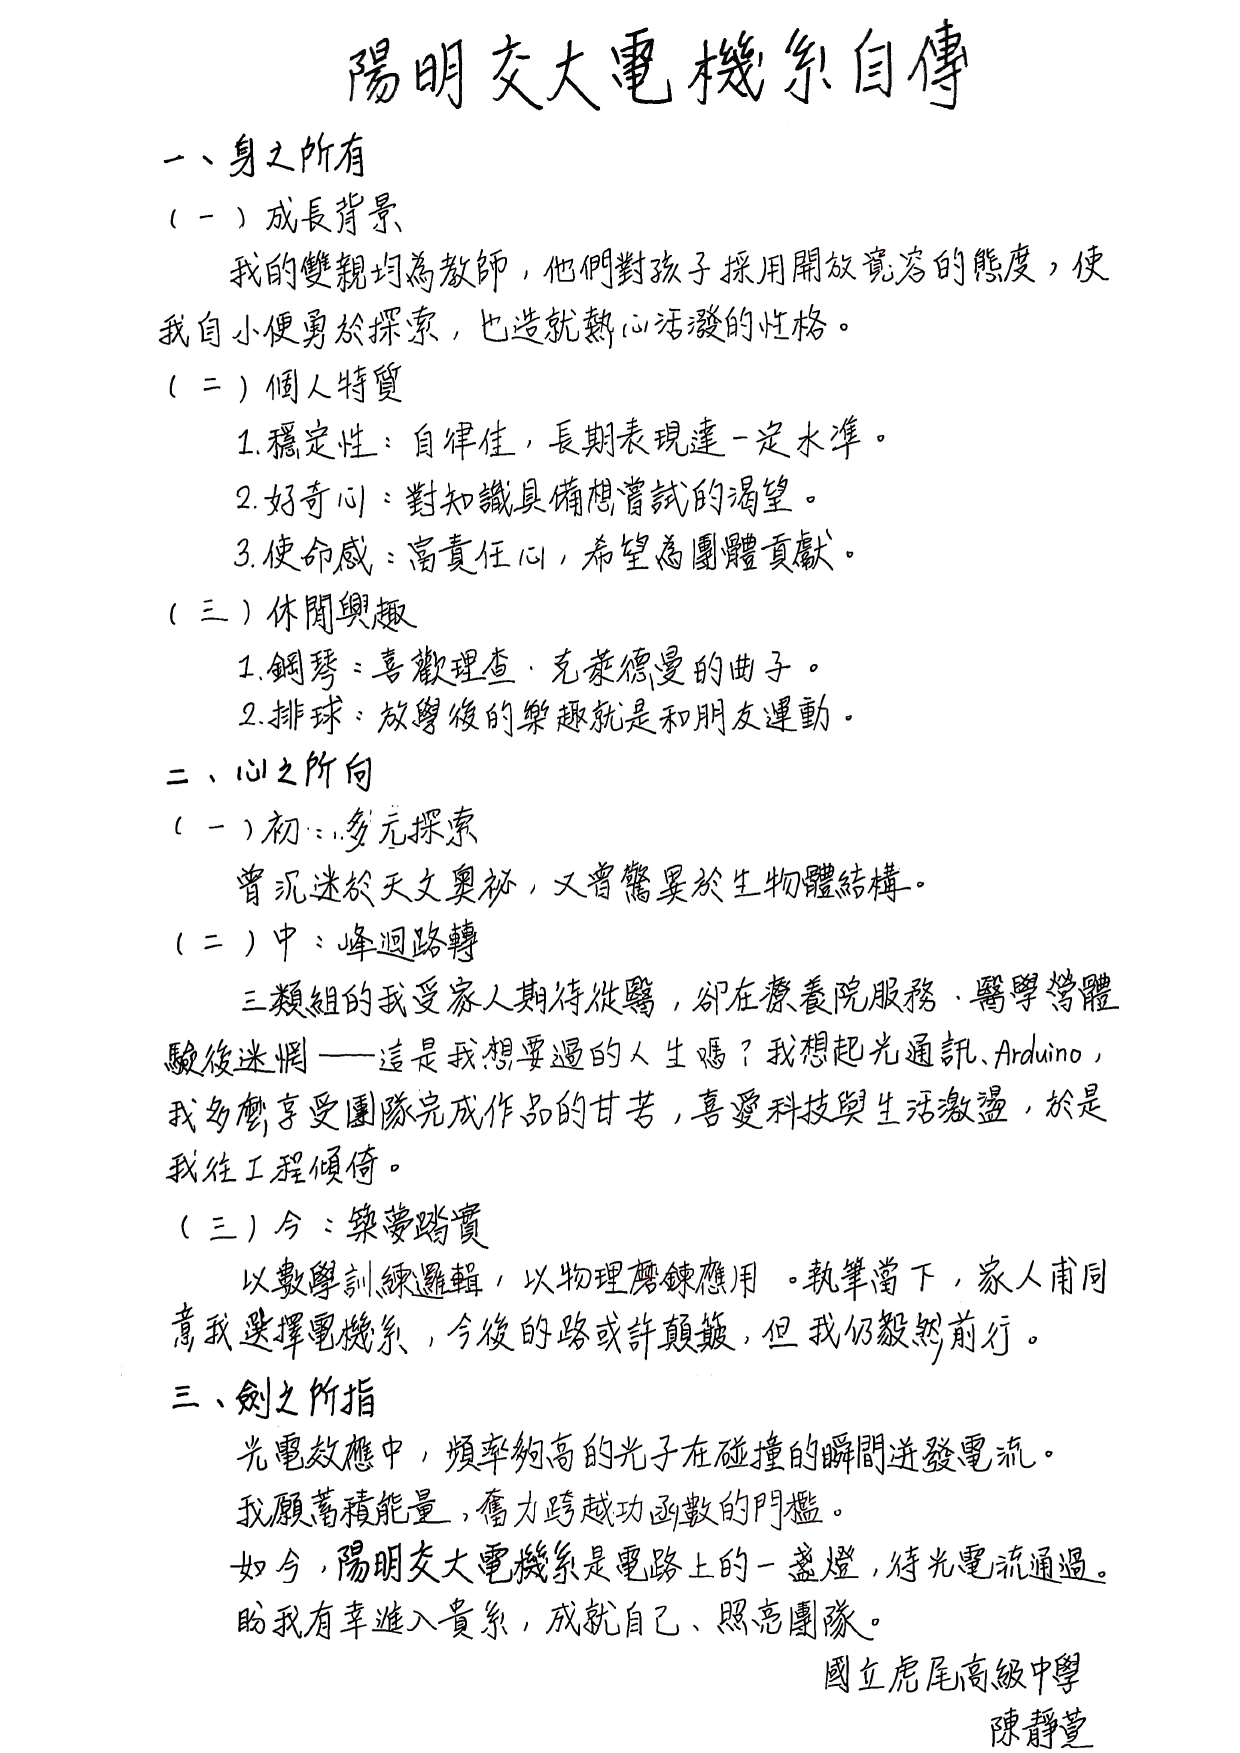 陽明交大電機系自傳
一、身之所有
(一)成長背景
我的雙親均為教師,他們對孩子採用開放寬容的態度,使
我自小便勇於探索,也造就熱心活潑的性格。
(二)個人特質
1.穩定性:自律佳,長期表現達一定水準。
2.好奇心:對知識具備想嘗試的渴望。
3.使命感:富責任心,希望為團體貢獻。
(三)休閒興趣
1.鋼琴:喜歡理查·克萊德曼的曲子。
2.排球:放學後的樂趣就是和朋友運動。
二、心之所向
(一)初:多元探索
曾沉迷於天文奧祕,又曾驚異於生物體結構。
(二)中:峰迴路轉
三類組的我受家人期待從醫,卻在療養院服務、醫學營體
驗後迷惘——這是我想要過的人生嗎?我想起光通訊、Arduino,
我多麼享受團隊完成作品的甘苦,喜愛科技與生活激盪,於是
我往工程傾倚。
(三)今:築夢踏實
以數學訓練邏輯,以物理磨鍊應用。執筆當下,家人甫同
意我選擇電機系,今後的路或許顛簸,但我仍毅然前行。
三、劍之所指
光電效應中,頻率夠高的光子在碰撞的瞬間迸發電流。
我願蓄積能量,奮力跨越功函數的門檻。
如今,陽明交大電機系是電路上的一盞燈,待光電流通過。
盼我有幸進入貴系,成就自己、照亮團隊。
國立虎尾高級中學
陳靜萱